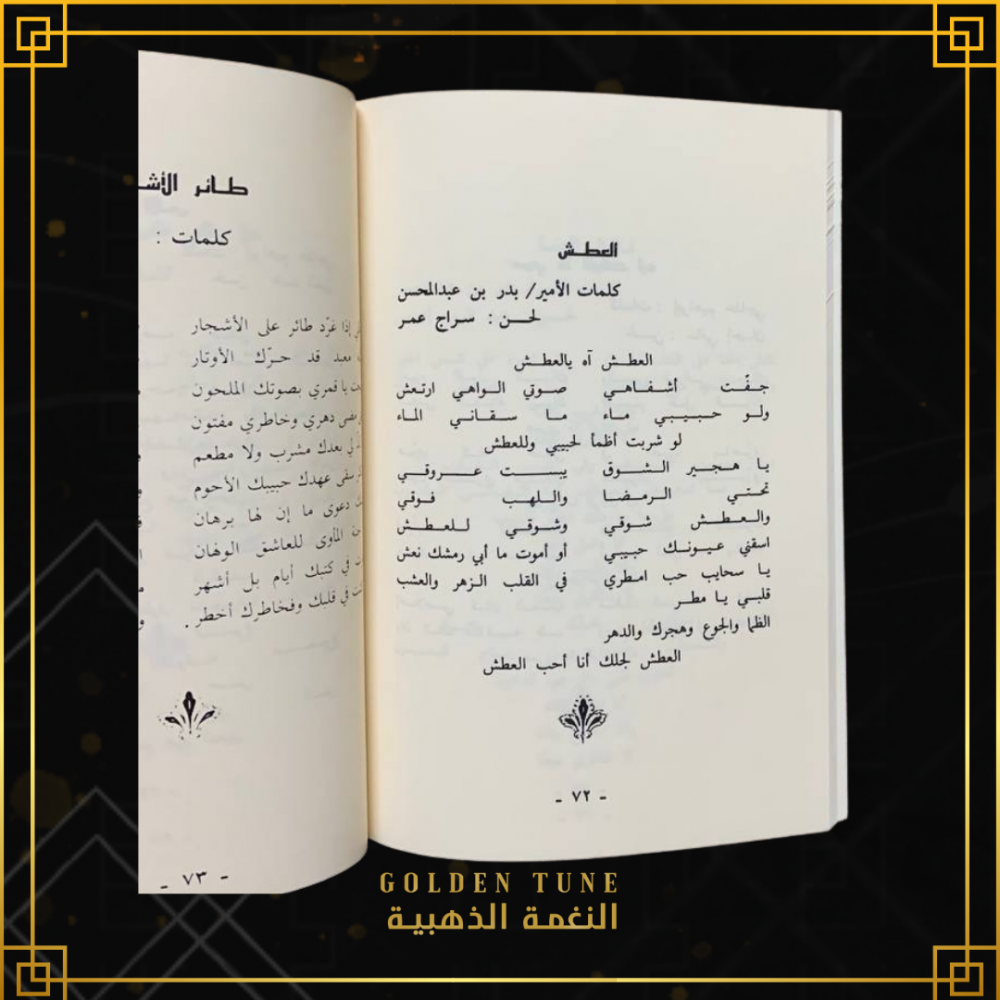 العطش
كلمات الأمير/ بدر بن عبدالمحسن
لحن : سراج عمر
العطش آه يالعطش
جفّت أشفاهي صوتي الواهي ارتعش
ولو حبيبي ماء ما سقاني الماء
لو شربت أظمأ لحبيبي وللعطش
يا هجير الشوق يبست عروقي
تحتي الرمضا واللهب فوقي
والعطش شوقي وشوقي للعطش
اسقني عيونك حبيبي أو أموت ما أبي رمشك نعش
يا سحايب حب امطري في القلب الزهر والعشب
قلبي يا مطر
الظما والجوع وهجرك والدهر
العطش لجلك أنا أحب العطش
- ٧٢ -
طائر
كلمات :
إذا غرّد طائر على الأشجار
معبد قد حرّك الأوتار
يا قمري بصوتك الملحون
دهري وخاطري مفتون
بعدك مشرب ولا مطعم
سقى عهدك حبيبك الأحوم
دعوى ما إن لها برهان
المأوى للعاشق الولهان
في كتبك أيام بل أشهر
في قلبك وفخاطرك أخطر .
- ٧٣ -
GOLDEN TUNE
النغمة الذهبية